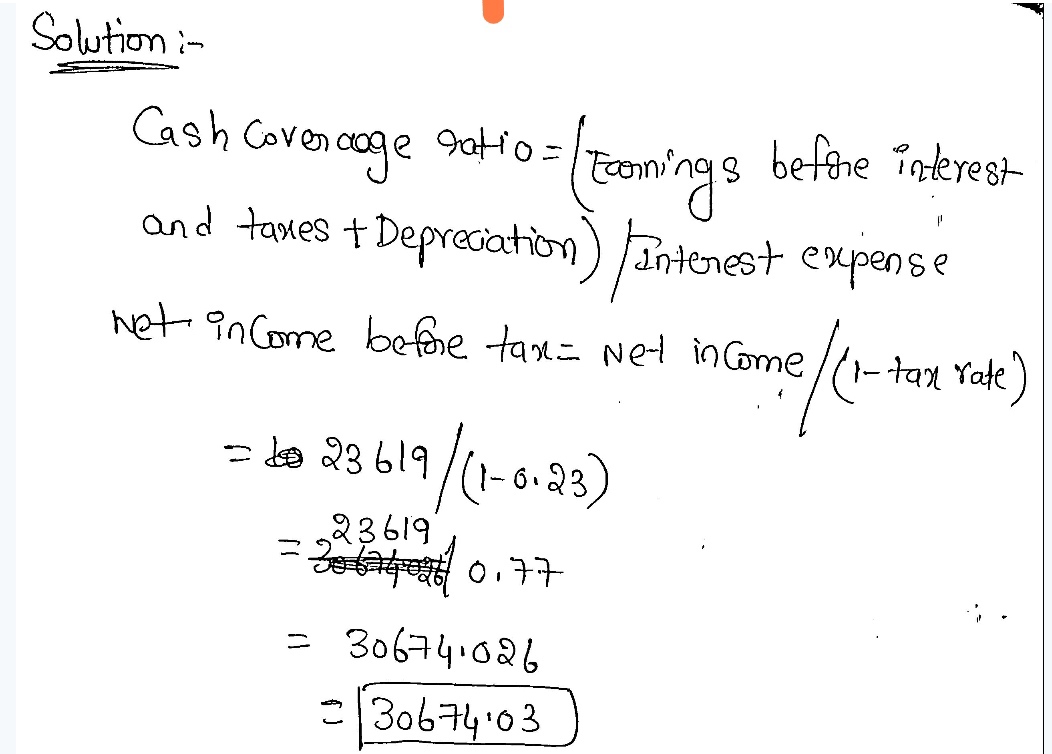 Solution :-
Cash Coverage ratio = (Earnings before interest
and taxes + Depreciation) / Interest expense
Net income before tax = Net income / (1 - tax rate)
= 23619 / (1 - 0.23)
= 23619 / 0.77
= 30674.026
= 30674.03